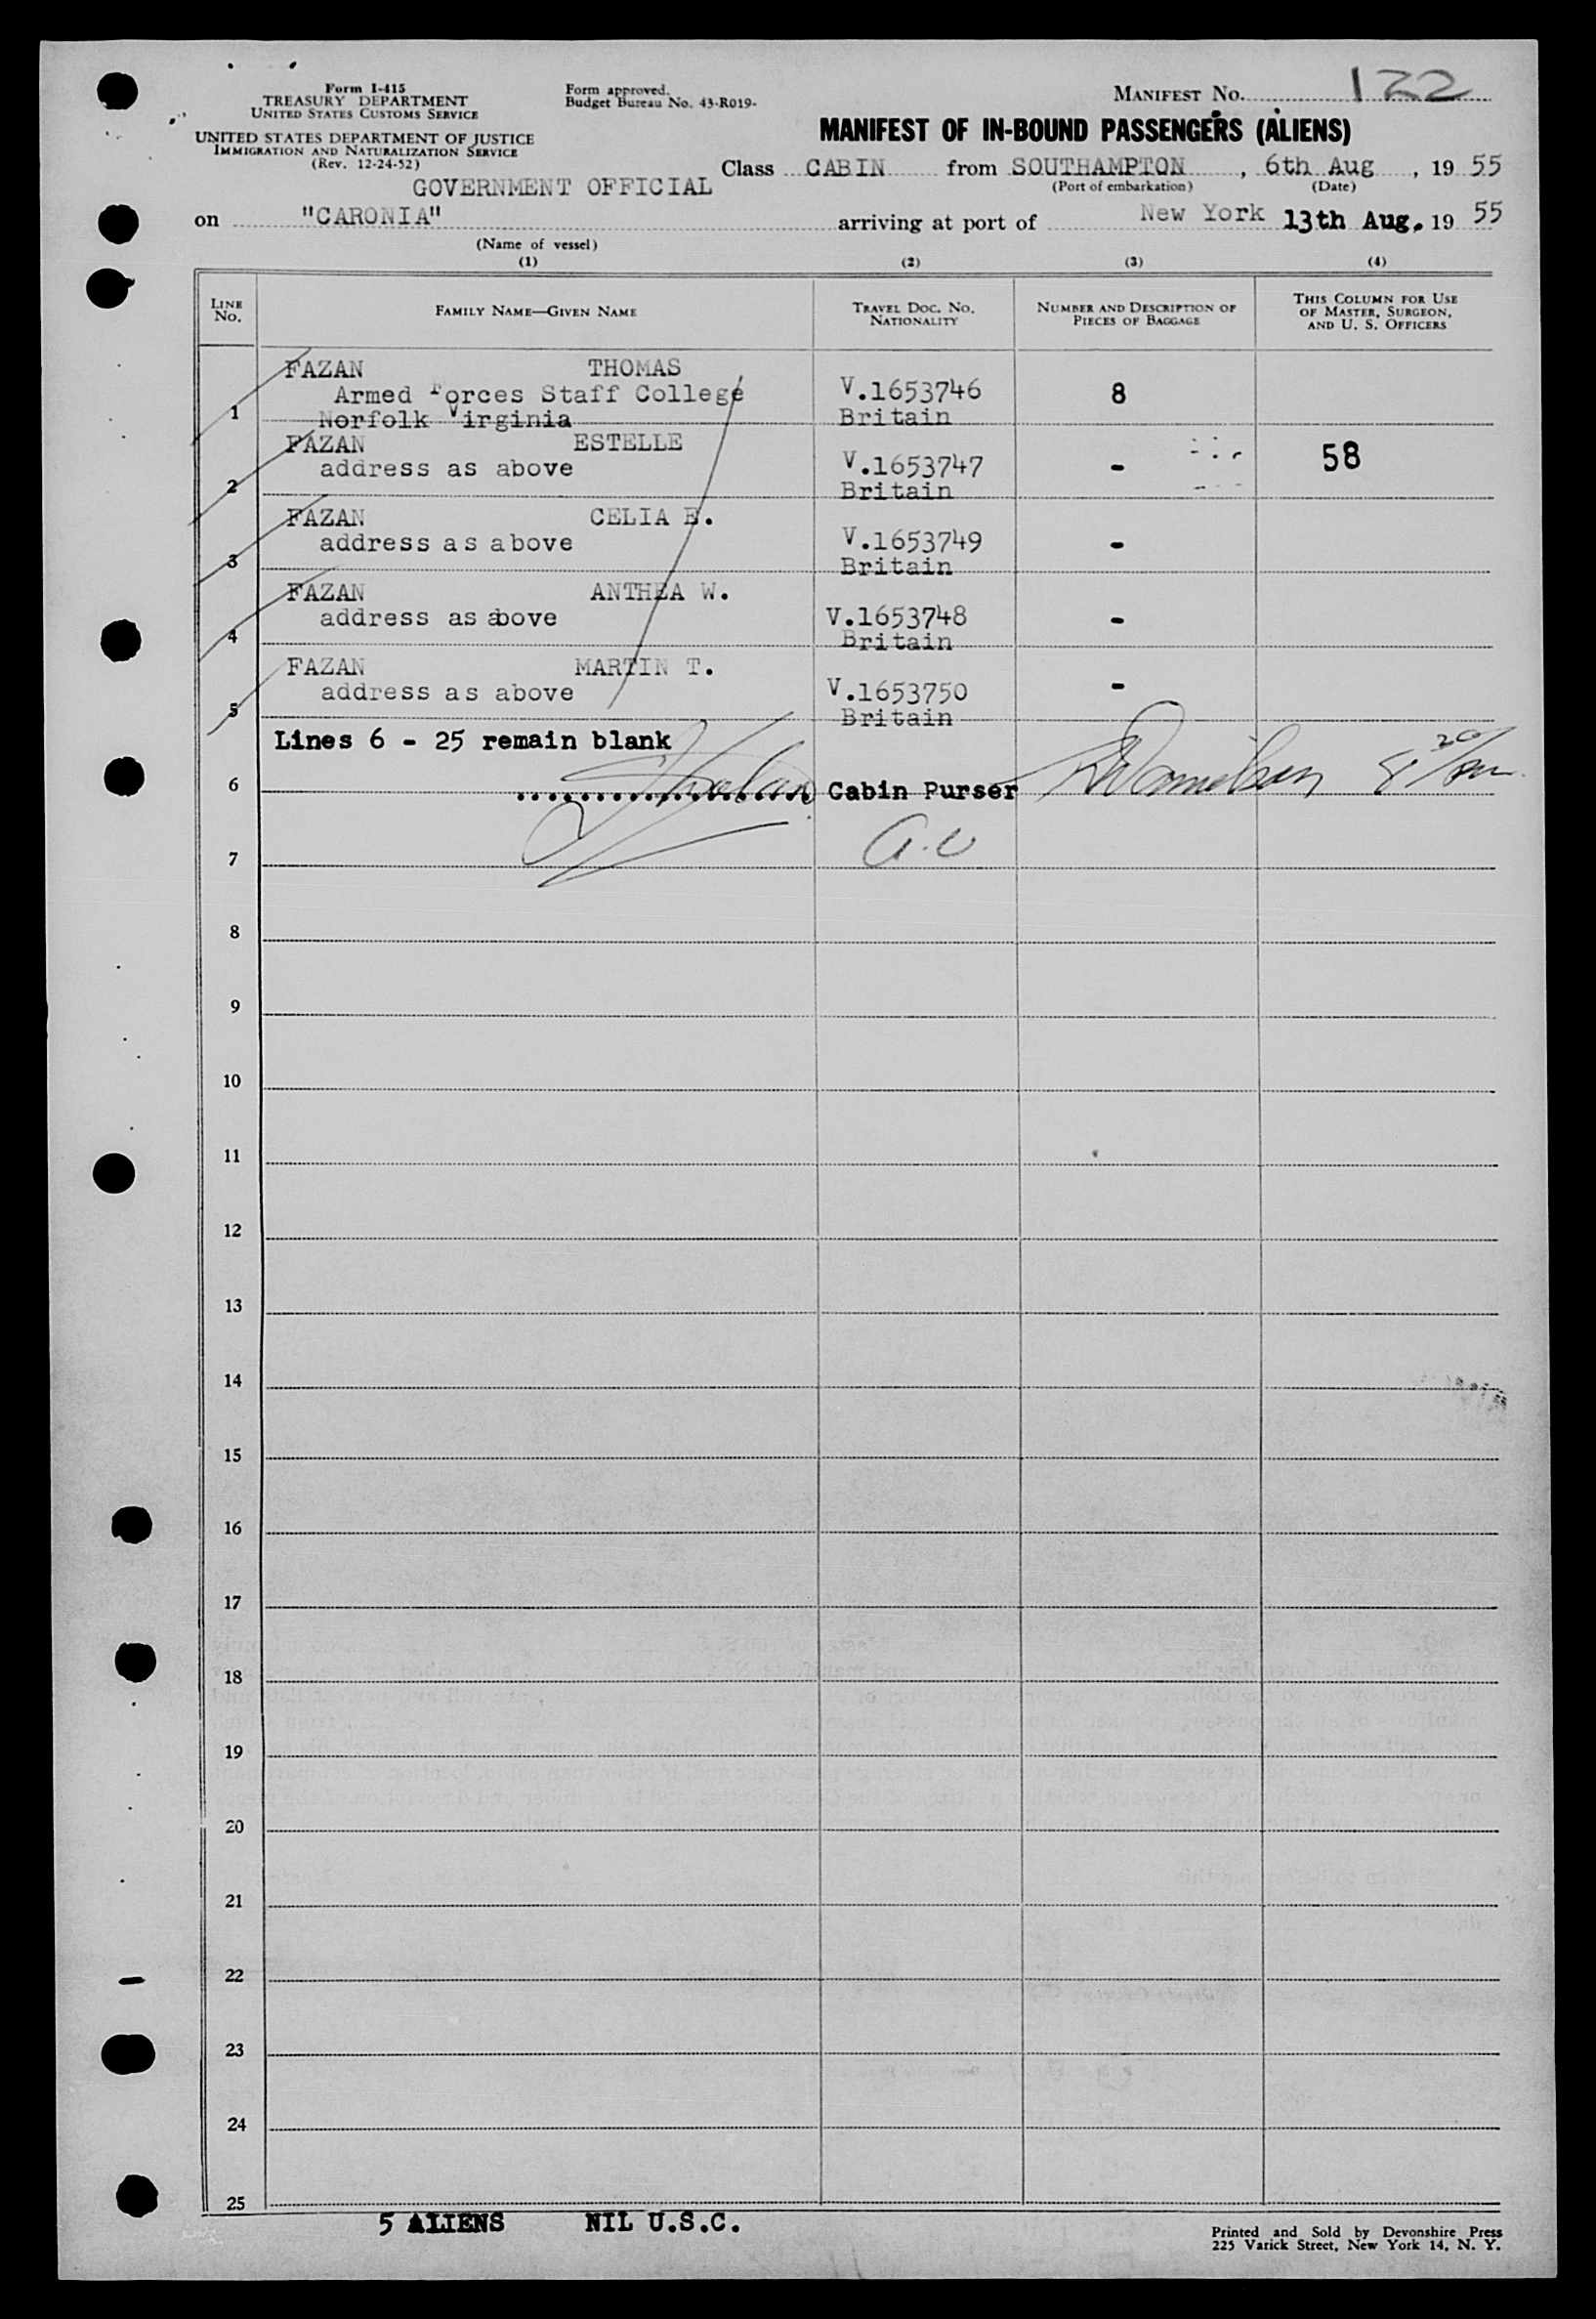 Form I-415
TREASURY DEPARTMENT
UNITED STATES CUSTOMS SERVICE
UNITED STATES DEPARTMENT OF JUSTICE
IMMIGRATION AND NATURALIZATION SERVICE
(Rev. 12-24-52)
Form approved.
Budget Bureau No. 43-R019-
MANIFEST No. 122
MANIFEST OF IN-BOUND PASSENGERS (ALIENS)
Class CABIN from SOUTHAMPTON, 6th Aug, 19 55
(Port of embarkation) (Date)
GOVERNMENT OFFICIAL
on "CARONIA" arriving at port of New York 13th Aug. 19 55
(Name of vessel)
(1) (2) (3) (4)
LINE No. FAMILY NAME—GIVEN NAME TRAVEL DOC. No. NATIONALITY NUMBER AND DESCRIPTION OF PIECES OF BAGGAGE THIS COLUMN FOR USE OF MASTER, SURGEON, AND U. S. OFFICERS
FAZAN THOMAS
Armed Forces Staff College V.1653746 8
1 Norfolk Virginia Britain
FAZAN ESTELLE 58
address as above V.1653747 -
2 Britain
FAZAN CELIA E.
address as above V.1653749 -
3 Britain
FAZAN ANTHEA W.
address as above V.1653748 -
4 Britain
FAZAN MARTIN T.
address as above V.1653750 -
5 Britain
Lines 6 - 25 remain blank
6 Cabin Purser
7
8
9
10
11
12
13
14
15
16
17
18
19
20
21
22
23
24
25
5 ALIENS NIL U.S.C.
Printed and Sold by Devonshire Press
225 Varick Street, New York 14, N. Y.